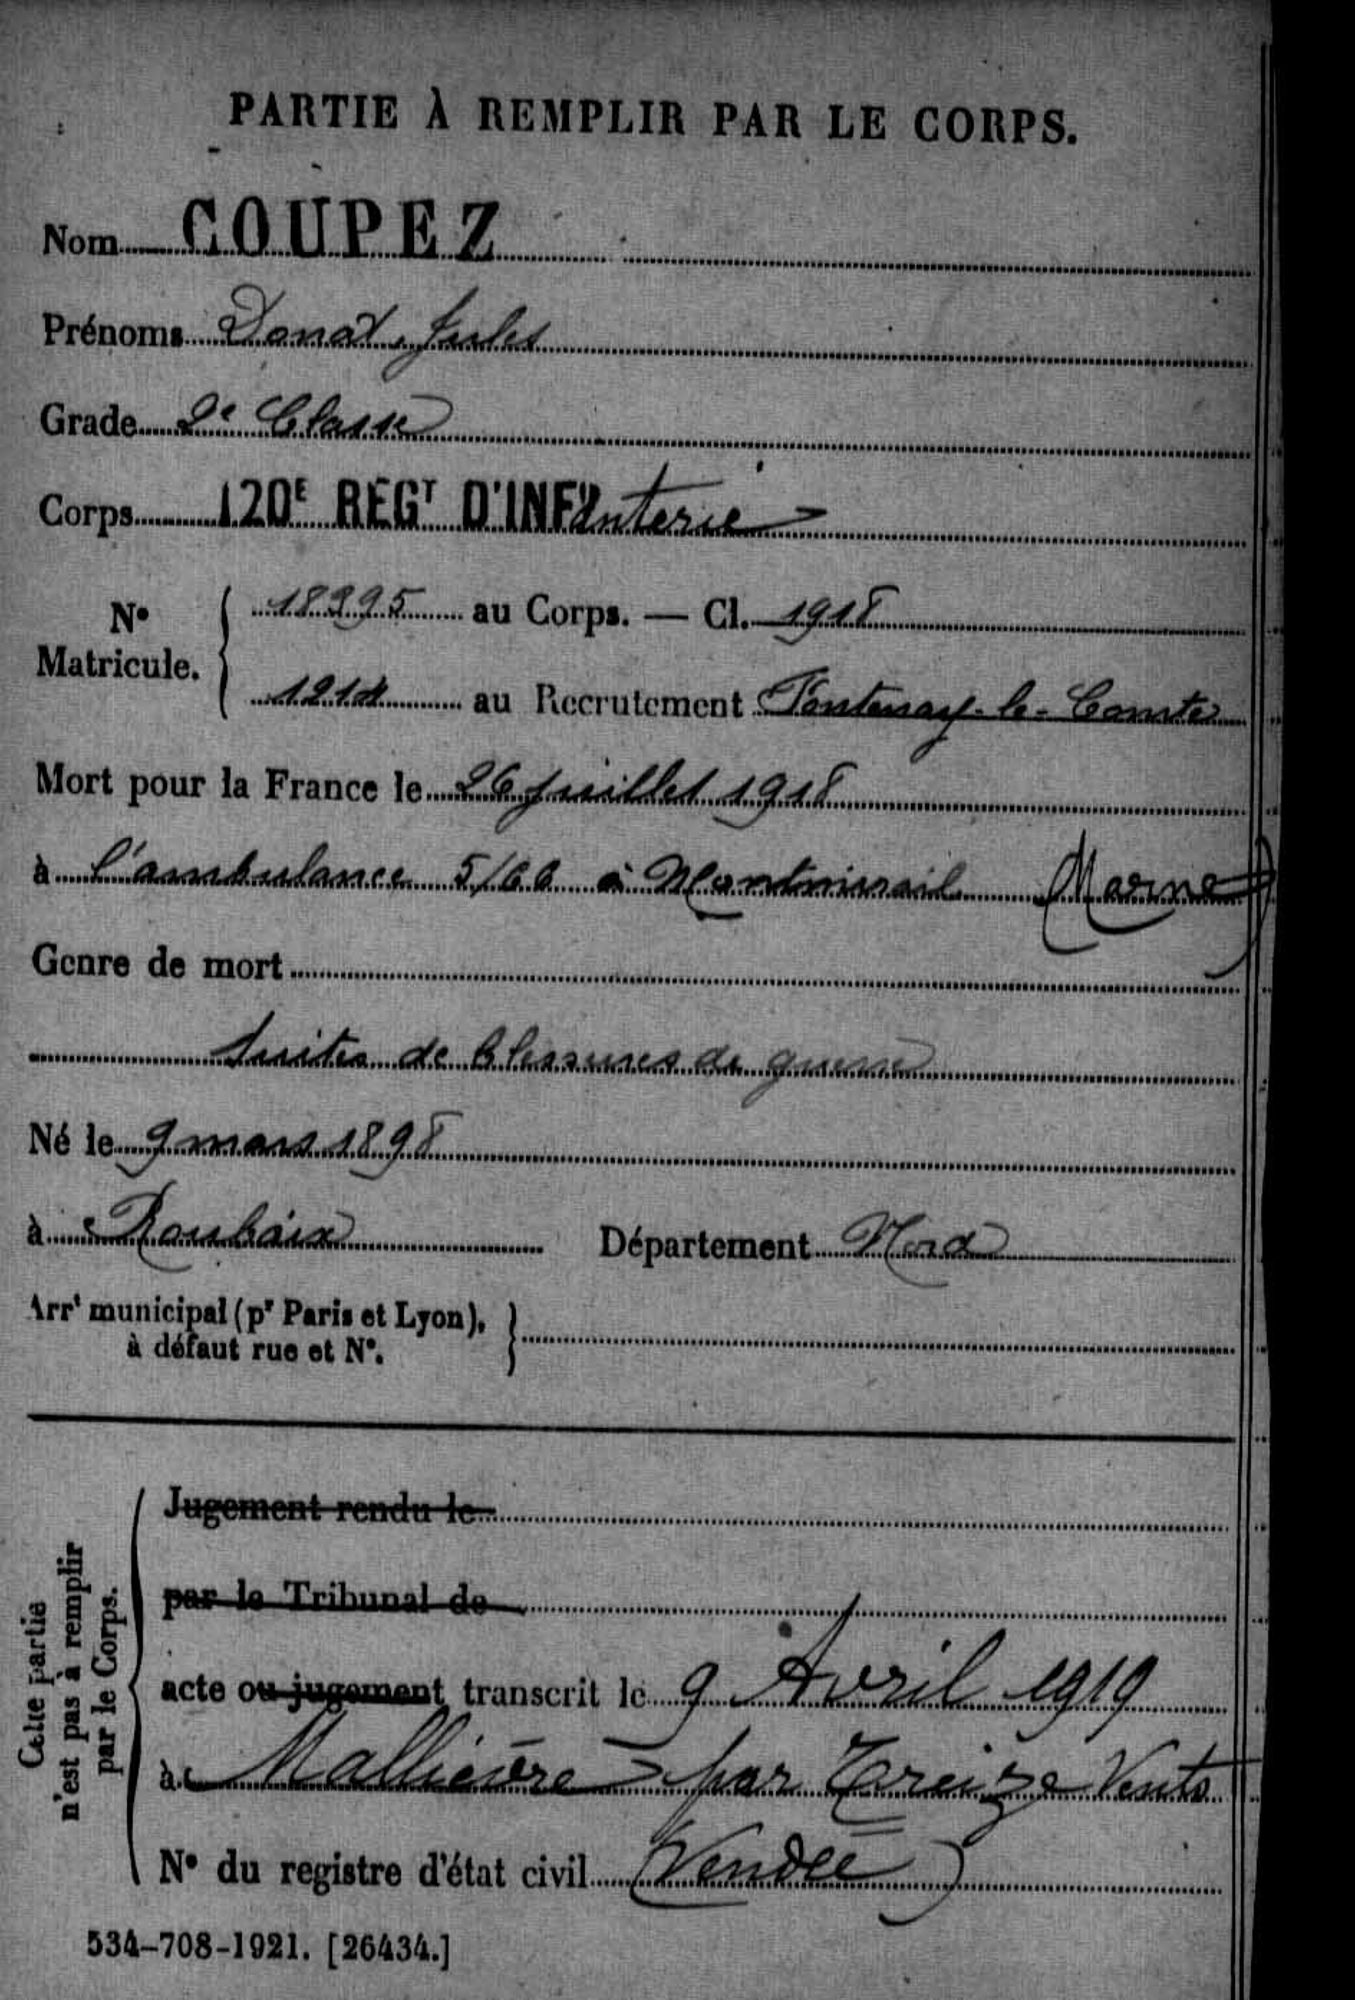 PARTIE À REMPLIR PAR LE CORPS.
Nom COUPEZ
Prénoms Donat, Jules
Grade 2e Classe
Corps 120E REGT D'INFanterie
No Matricule. 18995 au Corps. — Cl. 1918
1214 au Recrutement Fontenay-le-Comte
Mort pour la France le 26 juillet 1918
à l'ambulance 5/66 à Montmirail (Marne)
Genre de mort
Suites de blessures de guerre
Né le 9 mars 1898
à Roubaix Département Nord
Arrt municipal (pr Paris et Lyon),
à défaut rue et No.
Cette partie
n'est pas à remplir
par le Corps.
Jugement rendu le
par le Tribunal de
acte ou jugement transcrit le 9 Avril 1919
à Mallièvre par Treize Vents
No du registre d'état civil (Vendée)
534-708-1921. [26434.]